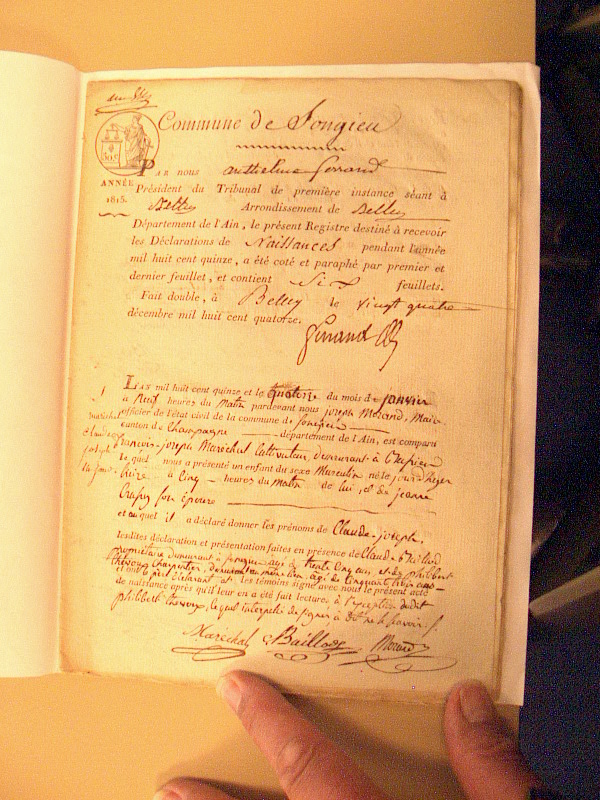 Commune de Songieu
PAR nous anthelme ferrand
ANNÉE
1815.
Président du Tribunal de première instance séant à
Belley Arrondissement de Belley
Département de l'Ain, le présent Registre destiné à recevoir
les Déclarations de Naissances pendant l'année
mil huit cent quinze, a été coté et paraphé par premier et
dernier feuillet, et contient Six feuillets.
Fait double, à Belley le vingt quatre
décembre mil huit cent quatorze.
ferrand
LAN mil huit cent quinze et le quatorze du mois de janvier
à neuf heures du Matin pardevant nous joseph Morand, Maire
officier de l'état civil de la commune de Songieu
canton de Champagne département de l'Ain, est comparu
françois-joseph Maréchal Cultivateur, demeurant à
lequel nous a présenté un enfant du sexe Masculin né le jour d'hyer
treize à Cinq heures du Matin de lui, et de jeanne
son épouse
et auquel il a déclaré donner les prénoms de Claude-joseph,
lesdites déclaration et présentation faites en présence de Claude
propriétaire demeurant à Songieu agé de trente cinq ans, et de philibert
thevoux Charpentier, demeurant au même lieu, agé de Cinquante trois ans
et ont le père déclarant et les témoins signé avec nous le présent acte
de naissance après qu'il leur en a été fait lecture, à l'exception dudit
philibert thevoux, lequel interpellé de signer à dit ne le savoir.
maréchal
Claude
joseph
Maréchal Baillod Morand